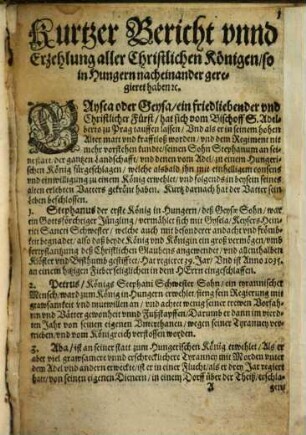 Kurtzer Bericht vnnd
Erzehlung aller Christlichen Königen/so
in Hungern nacheinander gere-
gieret haben ꝛc.
Gaysa oder Geysa/ein friedliebender vnd
Christlicher Fürst/hat sich vom Bischoff S. Adel-
berto zu Prag tauffen lassen/Vnd als er in seinem hohen
Alter matt vnd krafftloß worden/vnd dem Regiment nit
mehr vorstehen kundte/seinen Sohn Stephanum an sei-
ne statt/der gantzen Landschafft/vnd denen vom Adel/zu einem Hunge-
rischen König fürgeschlagen/welche alsbald ihn mit einhelligem consens
vnd einwilligung zu einem König erwehlet/vnd folgends in beysein seines
alten erlebten Vatters gekrönt haben. Kurtz darnach hat der Vatter sein
leben beschlossen.
1. Stephanus der erste König in Hungern/deß Geysæ Sohn/war
ein Gottsförchtiger Jüngling/vermählet sich mit Gysela/Keysers Hen-
rici Sancti Schwester/welche auch mit besonderer andacht vnd fromb-
keit begnadet/also daß beyde König vnd Königin ein groß vermögen/vmb
fortpflantzung deß Christlichen Glaubens angewendet/vnd allenthalben
Klöster vnd Probstung gestifftet. Hat regieret 39. Jar/Vnd ist Anno 1035.
an einem hitzigen Fieber seliglichen in dem HErrn eingeschlaffen.
2. Petrus/Königs Stephani Schwester Sohn/ein tyrannischer
Mensch/ward zum König in Hungern erwehlet/fieng sein Regierung mit
grawsamkeit vnd mutwillen an/vnd achtet wenig seiner trewen Vorfah-
ren vnd Vätter gewonheit vnnd Fußstapffen/Darumb er dann im vierd-
ten Jahr von seinen eigenen Vnterthanen/wegen seiner Tyranney ver-
trieben/vnd vom Königreich verstossen worden.
3. Aba/ist an seiner statt zum Hungerischen König erwehlet/Als er
aber viel grawsamere vnnd erschrecklichere Tyranney mit Morden vnter
dem Adel vnd andern erweckte/ist er in einer Flucht/als er drey Jar regiert
hatte/von seinen eigenen Dienern/in einem Dorff über der Theiß/erschla-
gen/